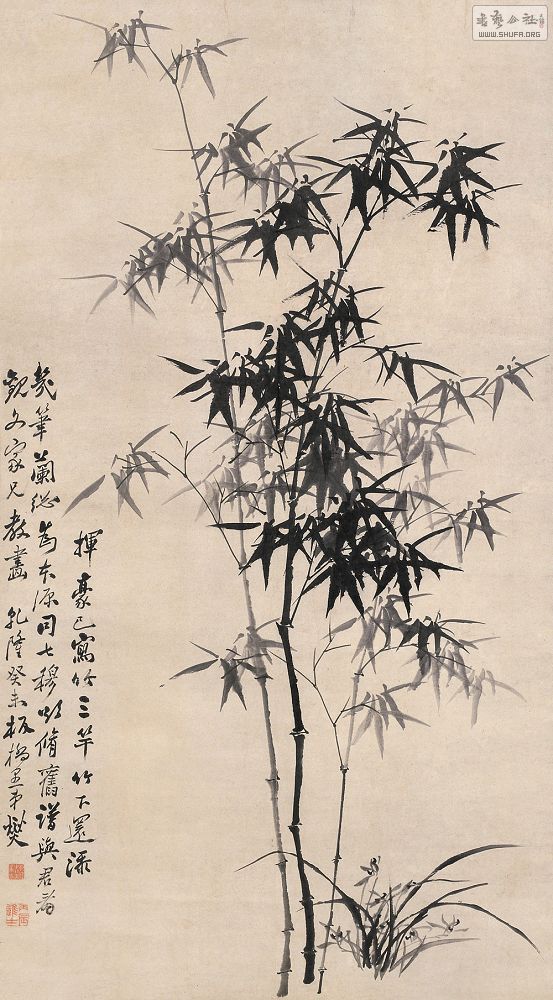 书艺公社
WWW.SHUFA.ORG
揮豪已寫竹三竿竹下還添
幾筆蘭總為本源同七穆欲脩舊譜與君看
觀文家兄教畫 乾隆癸未板橋愚弟燮
丙辰進士